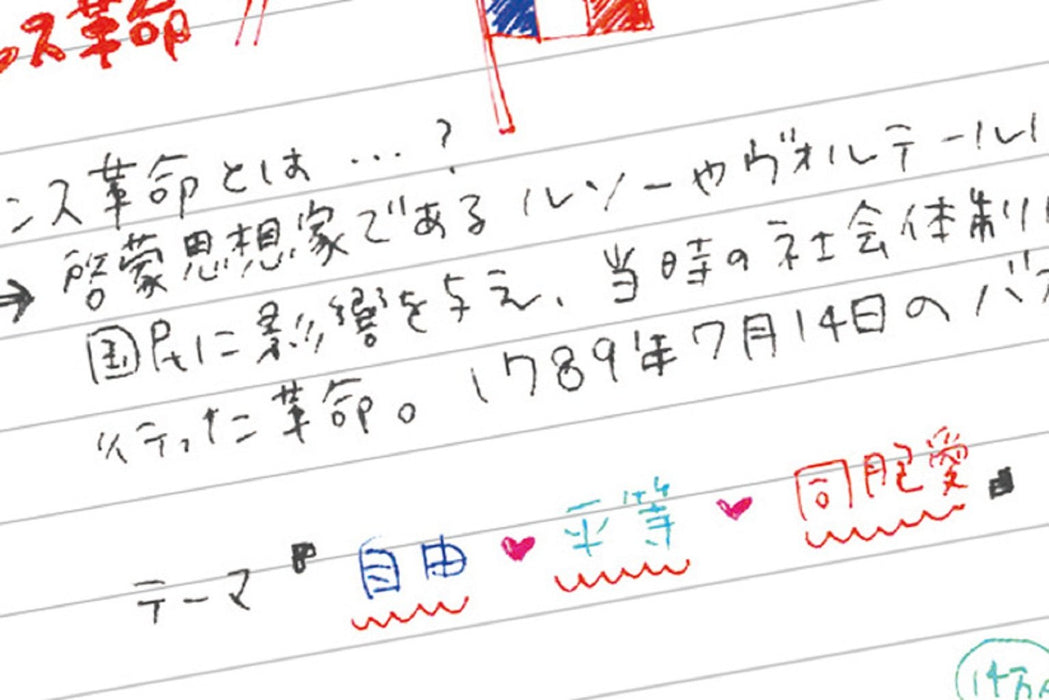 ス革命
ンス革命とは…?
→啓蒙思想家であるルソーやヴォルテール
国民に影響を与え、当時の社会体制
行った革命。1789年7月14日のバ
テーマ『自由♥平等♥同胞愛』
14万